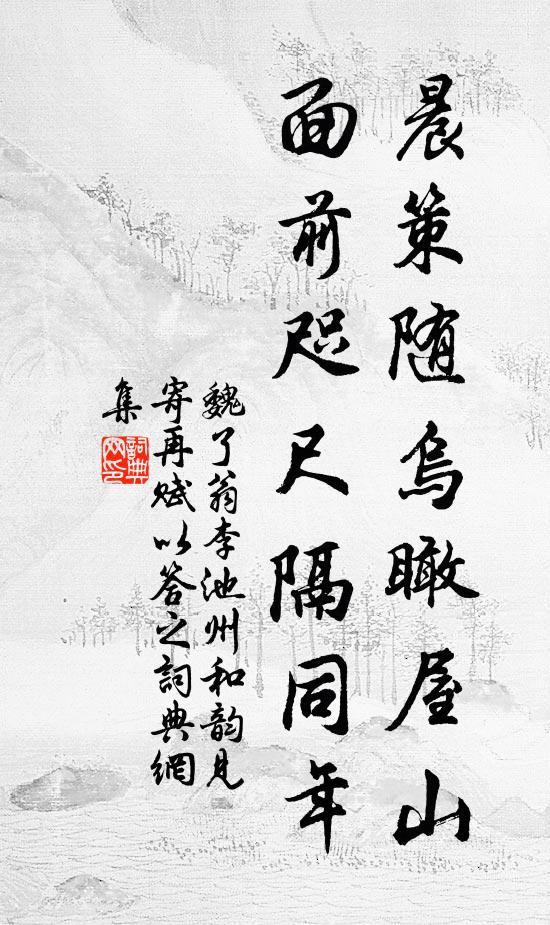 晨策随乌瞰屋山
面前咫尺隔同年
魏了翁李池州和韵见
寄再赋以答之詞典網
集
詞典網印